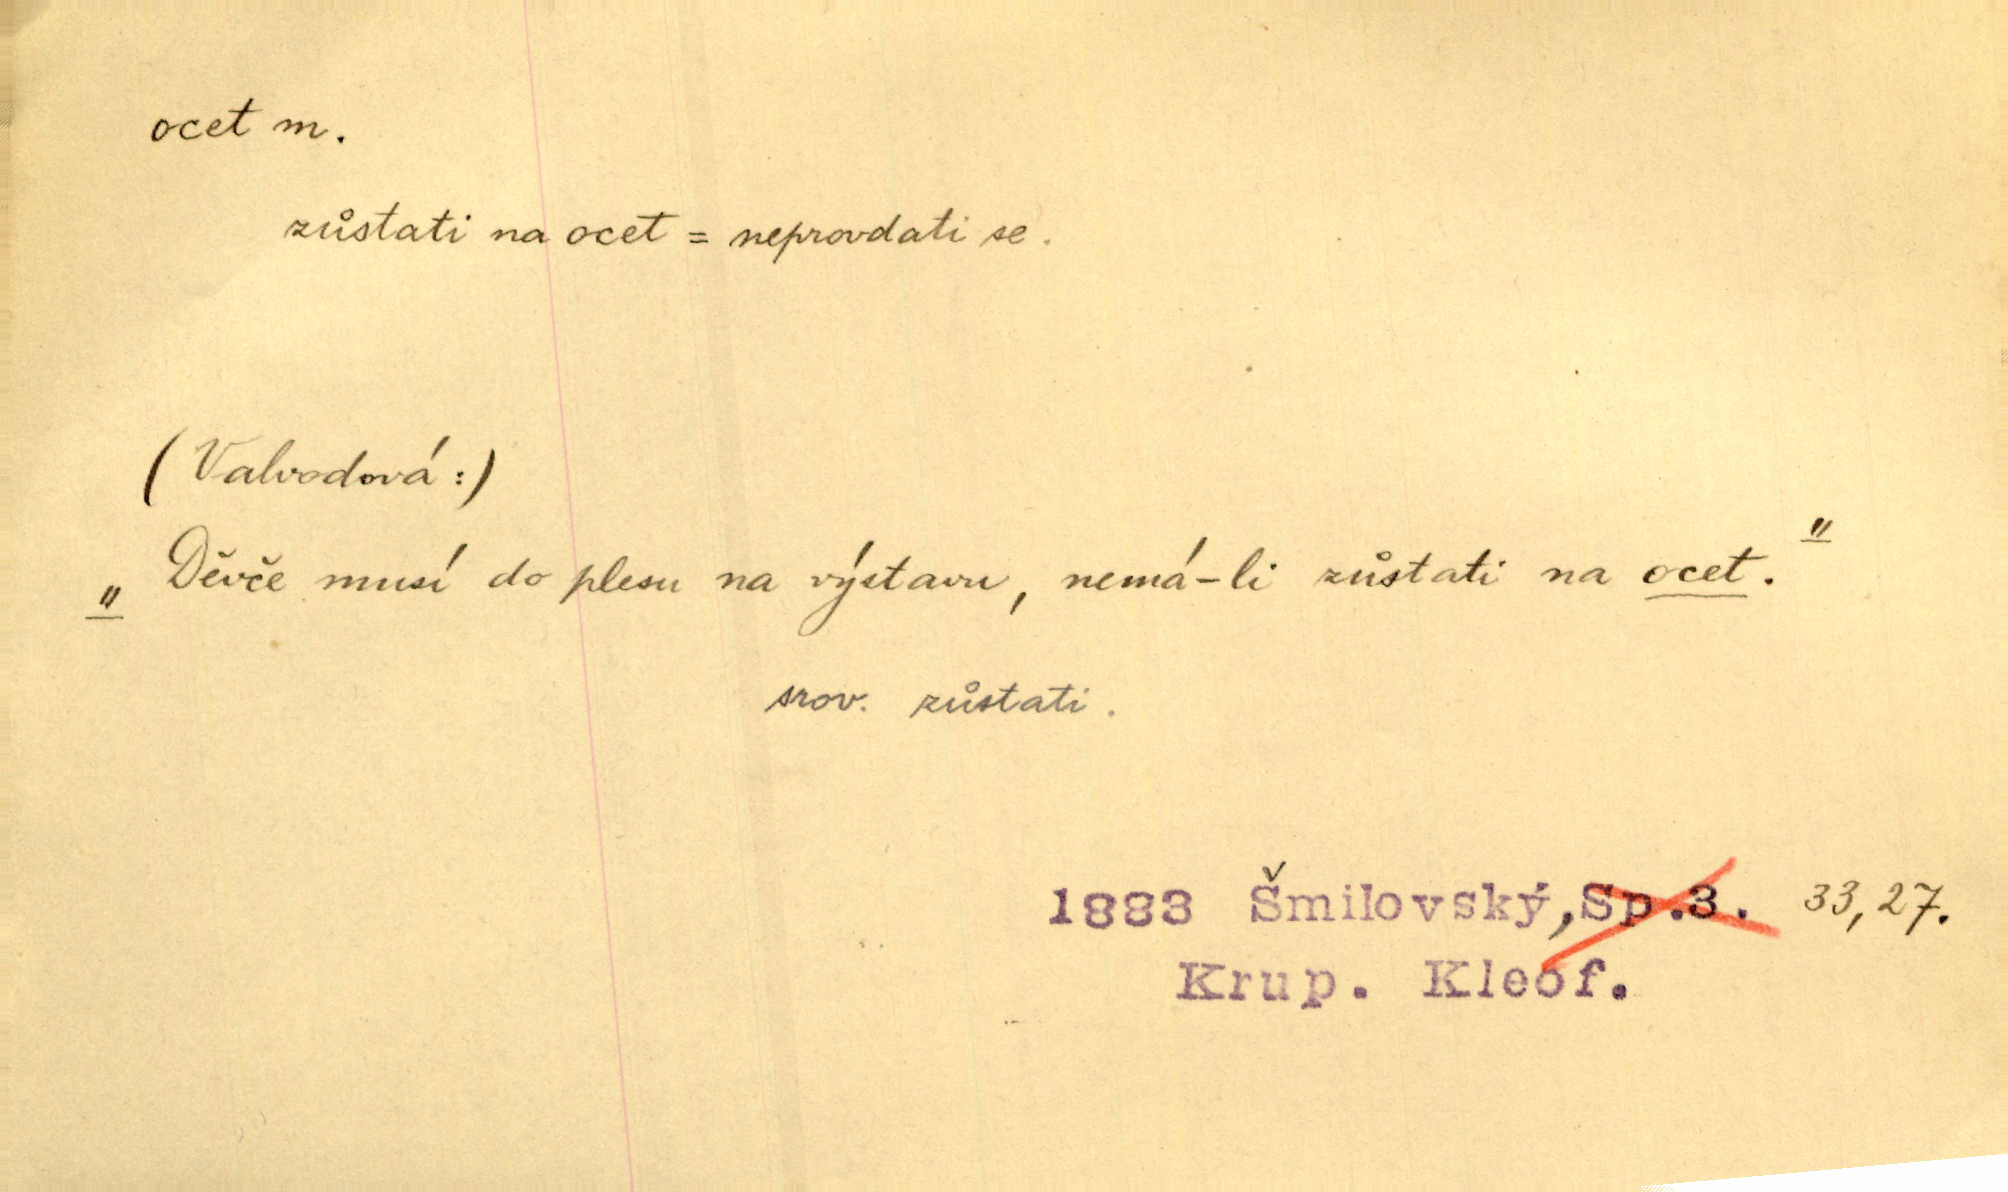 ocet m.
zůstati na ocet = neprovdati se.
(Valvodová:)
„Děvče musí do plesu na výstavu, nemá-li zůstati na ocet."
srov. zůstati.
1883 Šmilovský, Sp.3. 33,27.
Krup. Kleof.